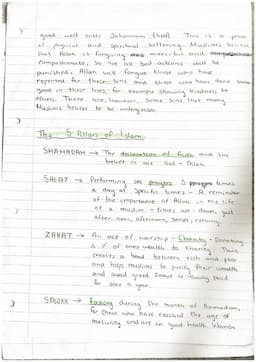 good will enter Jahannam (hell). This is a place
of physical and spiritual suffering. Muslims believe
that Allah is forgiving and merciful and
compassionate. So not all bad actions will be
punished. Allah will forgive those who have
repented for their sins and those who have done some
good in their lives, for example showing kindness to
others. There are, however, some sins that many
Muslims believe to be unforgivable.
The 5 Pillars of Islam
SHAHADAH → The declaration of faith and the
belief in one God - Allah
SALAT → Performing set prayers 5 times
a day at specific times - A reminder
of the importance of Allah in the life
of a muslim - times are: dawn, just
after noon, afternoon, Sunset, evening
ZAKAT → An act of worship - Charity - Donating
a % of ones wealth to charity. This
creates a bond between rich and poor
and helps muslims to purify their wealth
and avoid greed. Zakat is paid
once a year.
SAWM → Fasting during the month of Ramadan,
for those who have reached the age of
maturity and are in good health. Women